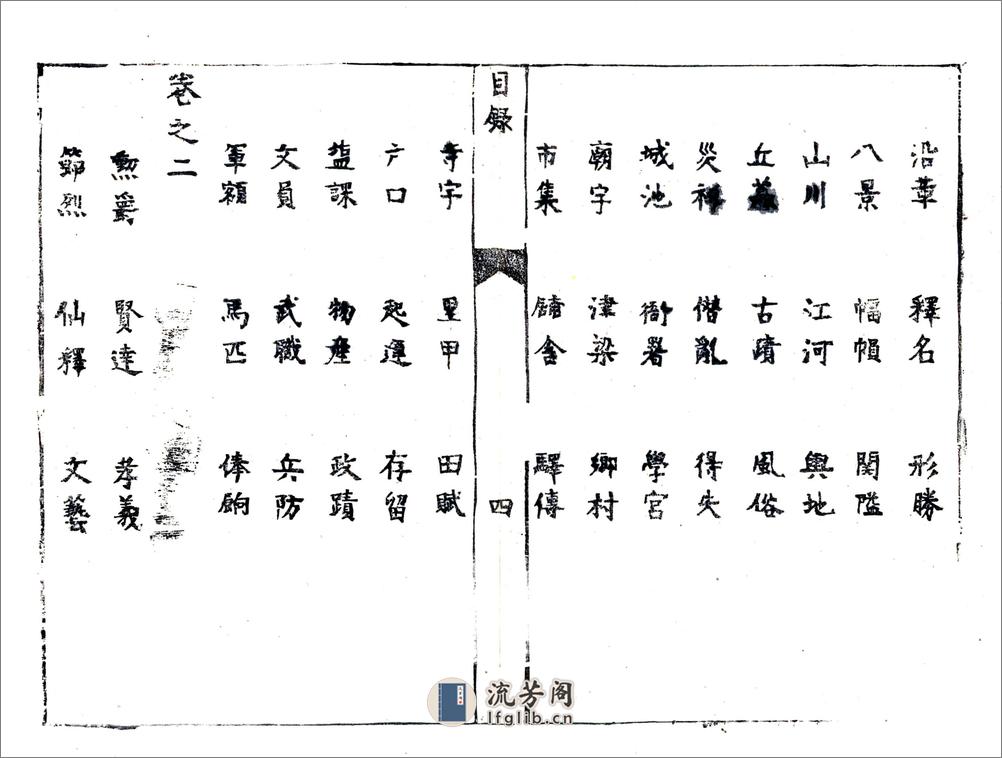 沿革 釋名 形勝
八景 幅帽 關隘
山川 江河 輿地
丘墓 古蹟 風俗
災祥 僭亂 得失
城池 衙署 學宮
廟宇 津梁 鄉村
市集 舖舍 驛傳
目錄 四
寺宇 里甲 田賦
戶口 起運 存留
塩課 物產 政蹟
文員 武職 兵防
軍額 馬匹 俸餉
卷之二
勲爵 賢達 孝義
節烈 仙釋 文藝
流芳阁
lfglib.cn